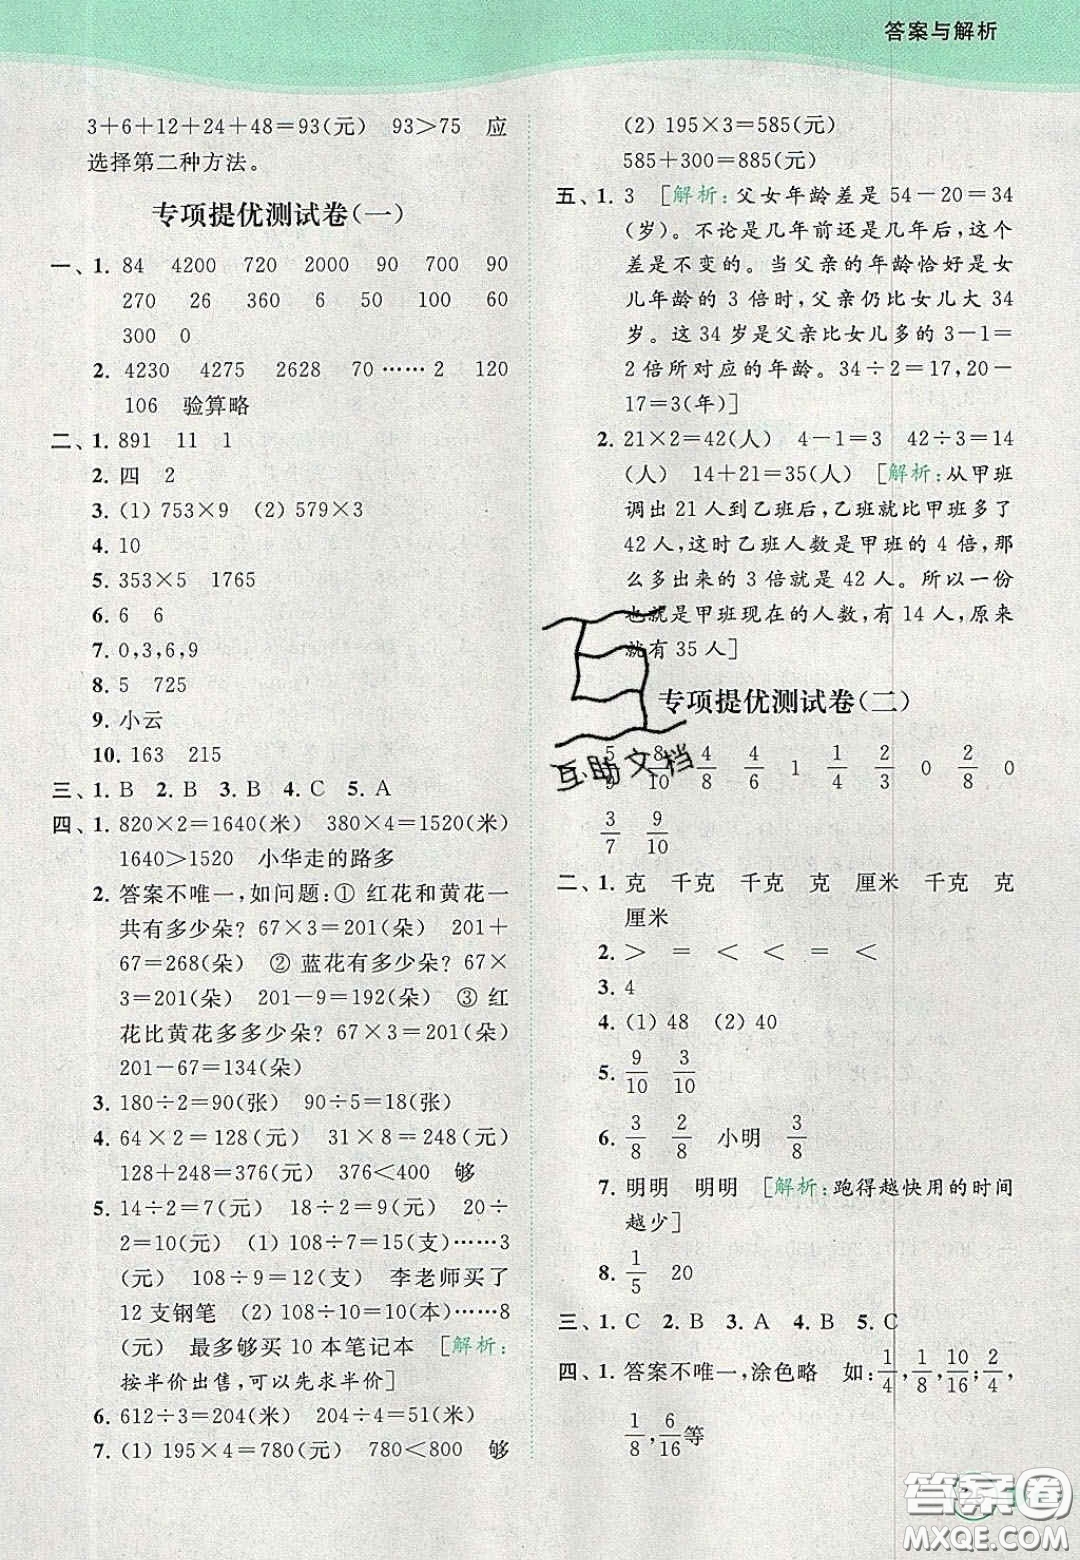 答案与解析
3+6+12+24+48=93(元) 93>75 应
选择第二种方法。
专项提优测试卷(一)
一、1. 84 4200 720 2000 90 700 90
270 26 360 6 50 100 60
300 0
2. 4230 4275 2628 70……2 120
106 验算略
二、1. 891 11 1
2. 四 2
3. (1) 753×9 (2) 579×3
4. 10
5. 353×5 1765
6. 6 6
7. 0,3,6,9
8. 5 725
9. 小云
10. 163 215
三、1. B 2. B 3. B 4. C 5. A
四、1. 820×2=1640(米) 380×4=1520(米)
1640>1520 小华走的路多
2. 答案不唯一,如问题:① 红花和黄花一
共有多少朵? 67×3=201(朵) 201+
67=268(朵) ② 蓝花有多少朵? 67×
3=201(朵) 201-9=192(朵) ③ 红
花比黄花多多少朵? 67×3=201(朵)
201-67=134(朵)
3. 180÷2=90(张) 90÷5=18(张)
4. 64×2=128(元) 31×8=248(元)
128+248=376(元) 376<400 够
5. 14÷2=7(元) 18÷2=9(元) 20÷
2=10(元) (1) 108÷7=15(支)……3
(元) 108÷9=12(支) 李老师买了
12支钢笔 (2) 108÷10=10(本)……8
(元) 最多够买10本笔记本 [解析:
按半价出售,可以先求半价]
6. 612÷3=204(米) 204÷4=51(米)
7. (1) 195×4=780(元) 780<800 够
(2) 195×3=585(元)
585+300=885(元)
五、1. 3 [解析:父女年龄差是54-20=34
(岁)。不论是几年前还是几年后,这个
差是不变的。当父亲的年龄恰好是女
儿年龄的3倍时,父亲仍比女儿大34
岁。这34岁是父亲比女儿多的3-1=
2倍所对应的年龄。34÷2=17,20-
17=3(年)]
2. 21×2=42(人) 4-1=3 42÷3=14
(人) 14+21=35(人) [解析:从甲班
调出21人到乙班后,乙班就比甲班多了
42人,这时乙班人数是甲班的4倍,那
么多出来的3倍就是42人。所以一份
也就是甲班现在的人数,有14人,原来
就有35人]
专项提优测试卷(二)
5/9 8/10 4/8 4/6 1 1/4 2/3 0 2/8 0
3/7 9/10
二、1. 克 千克 千克 克 厘米 千克 克
厘米
2. > = < < = <
3. 4
4. (1) 48 (2) 40
5. 9/10 3/10
6. 3/8 2/8 小明 3/8
7. 明明 明明 [解析:跑得越快用的时间
越少]
8. 1/5 20
三、1. C 2. B 3. A 4. B 5. C
四、1. 答案不唯一,涂色略 如:1/4,1/8,10/16;2/4,
1/8,6/16等
互助文档
答案圈
MXQE.COM